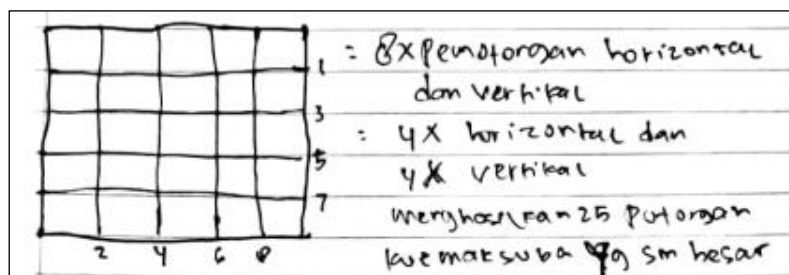 = 8x pemotongan horizontal
1
dan vertikal
3
= 4x horizontal dan
5
4x vertikal
7
menghasilkan 25 potongan
2 4 6 8
kue maksuba yg sm besar